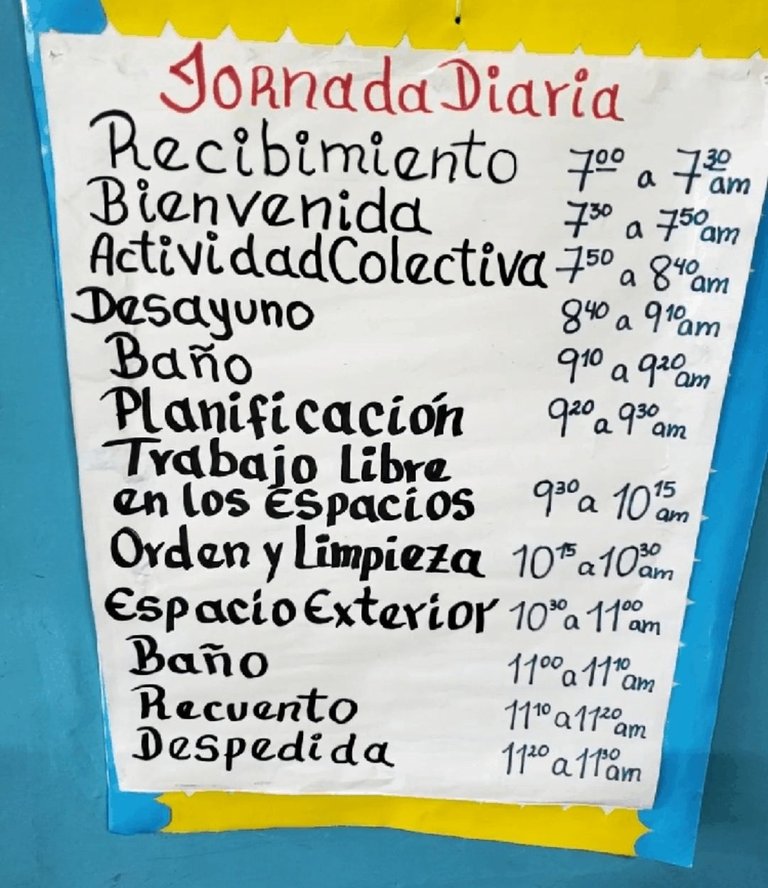 Jornada Diaria
Recibimiento 7⁰⁰ a 7³⁰ am
Bienvenida 7³⁰ a 7⁵⁰ am
Actividad Colectiva 7⁵⁰ a 8⁴⁰ am
Desayuno 8⁴⁰ a 9¹⁰ am
Baño 9¹⁰ a 9²⁰ am
Planificación 9²⁰ a 9³⁰ am
Trabajo Libre
en los Espacios 9³⁰ a 10¹⁵ am
Orden y Limpieza 10¹⁵ a 10³⁰ am
Espacio Exterior 10³⁰ a 11⁰⁰ am
Baño 11⁰⁰ a 11¹⁰ am
Recuento 11¹⁰ a 11²⁰ am
Despedida 11²⁰ a 11³⁰ am